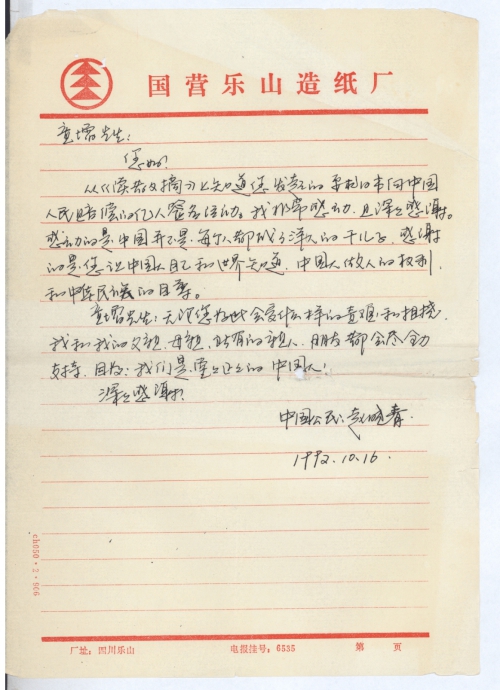 国营乐山造纸厂
童增先生：
您好！
从《读者文摘》上知道您发起的要求日本向中国
人民赔偿的亿人签名活动。我非常感动，且深深感谢。
感动的是中国并不是每个人都成了洋人的干儿子，感谢
的是您让中国人自己和世界知道，中国人做人的权利，
和中华民族的自尊。
童增先生：无论您为此会受什么样的责难和阻挠，
我和我的父亲、母亲，所有的亲人、朋友都会尽全力
支持，因为：我们是堂堂正正的中国人！
深深感谢！
中国公民：赵晓春.
1992.10.16
ch050·2·906
厂址：四川乐山 电报挂号：6535 第 页